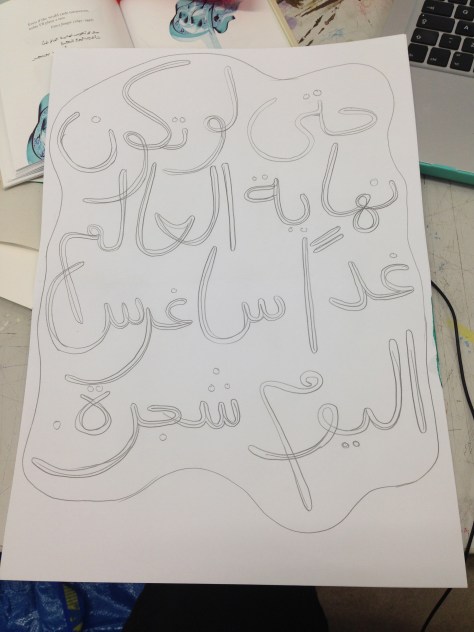 حتى لو تكون
نهاية العالم
غداً ساغرس
اليوم شجرة